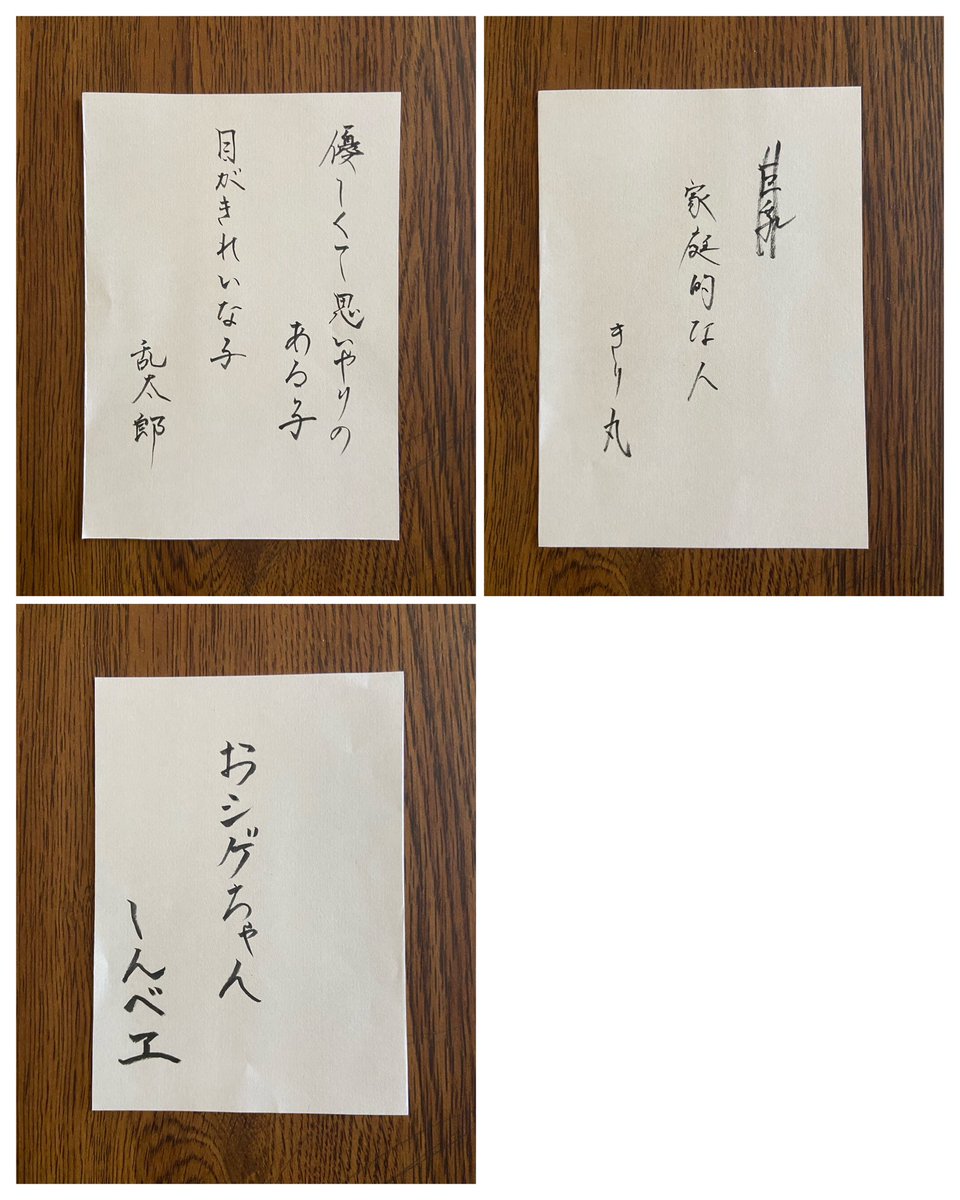 優しくて思いやりの
ある子
目がきれいな子
乱太郎
巨乳
家庭的な人
きり丸
おシゲちゃん
しんべヱ